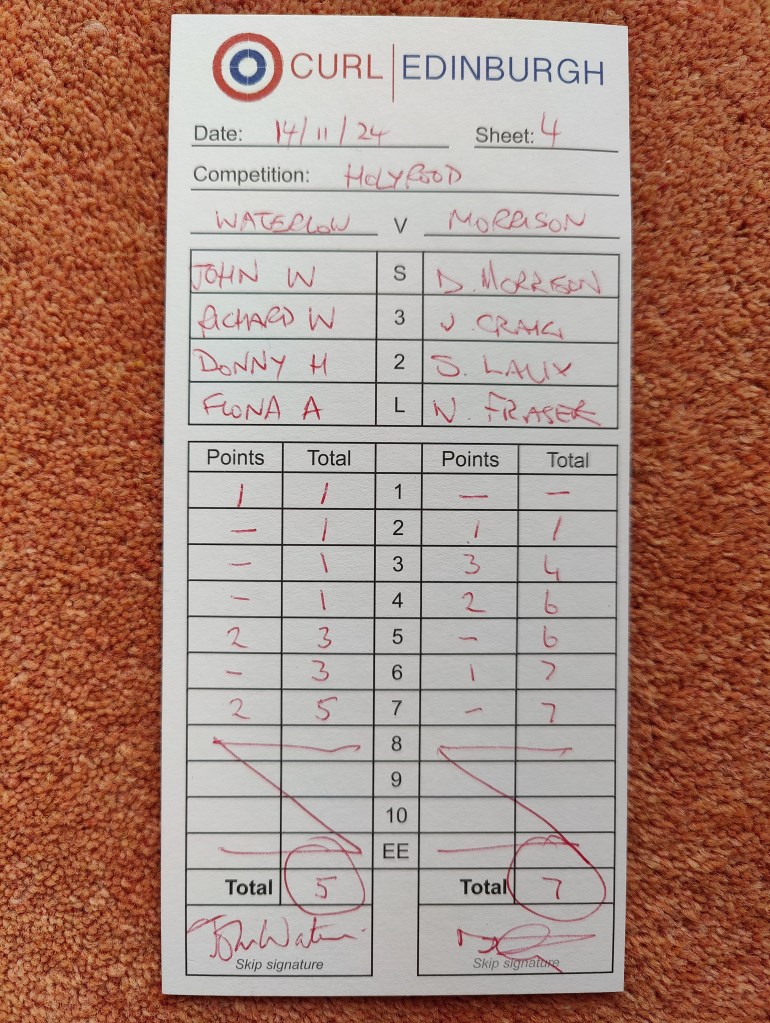 CURL EDINBURGH
Date: 14/11/24 Sheet: 4
Competition: HOLYROOD
WATERLOW V MORRISON
JOHN W S D. MORRISON
RICHARD W 3 J. CRAIG
DONNY H 2 S. LAUX
FIONA A L N. FRASER
Points Total Points Total
1 1 1 — —
— 1 2 1 1
— 1 3 3 4
— 1 4 2 6
2 3 5 — 6
— 3 6 1 7
2 5 7 — 7
8
9
10
EE
Total 5 Total 7
John Skip signature
Skip signature